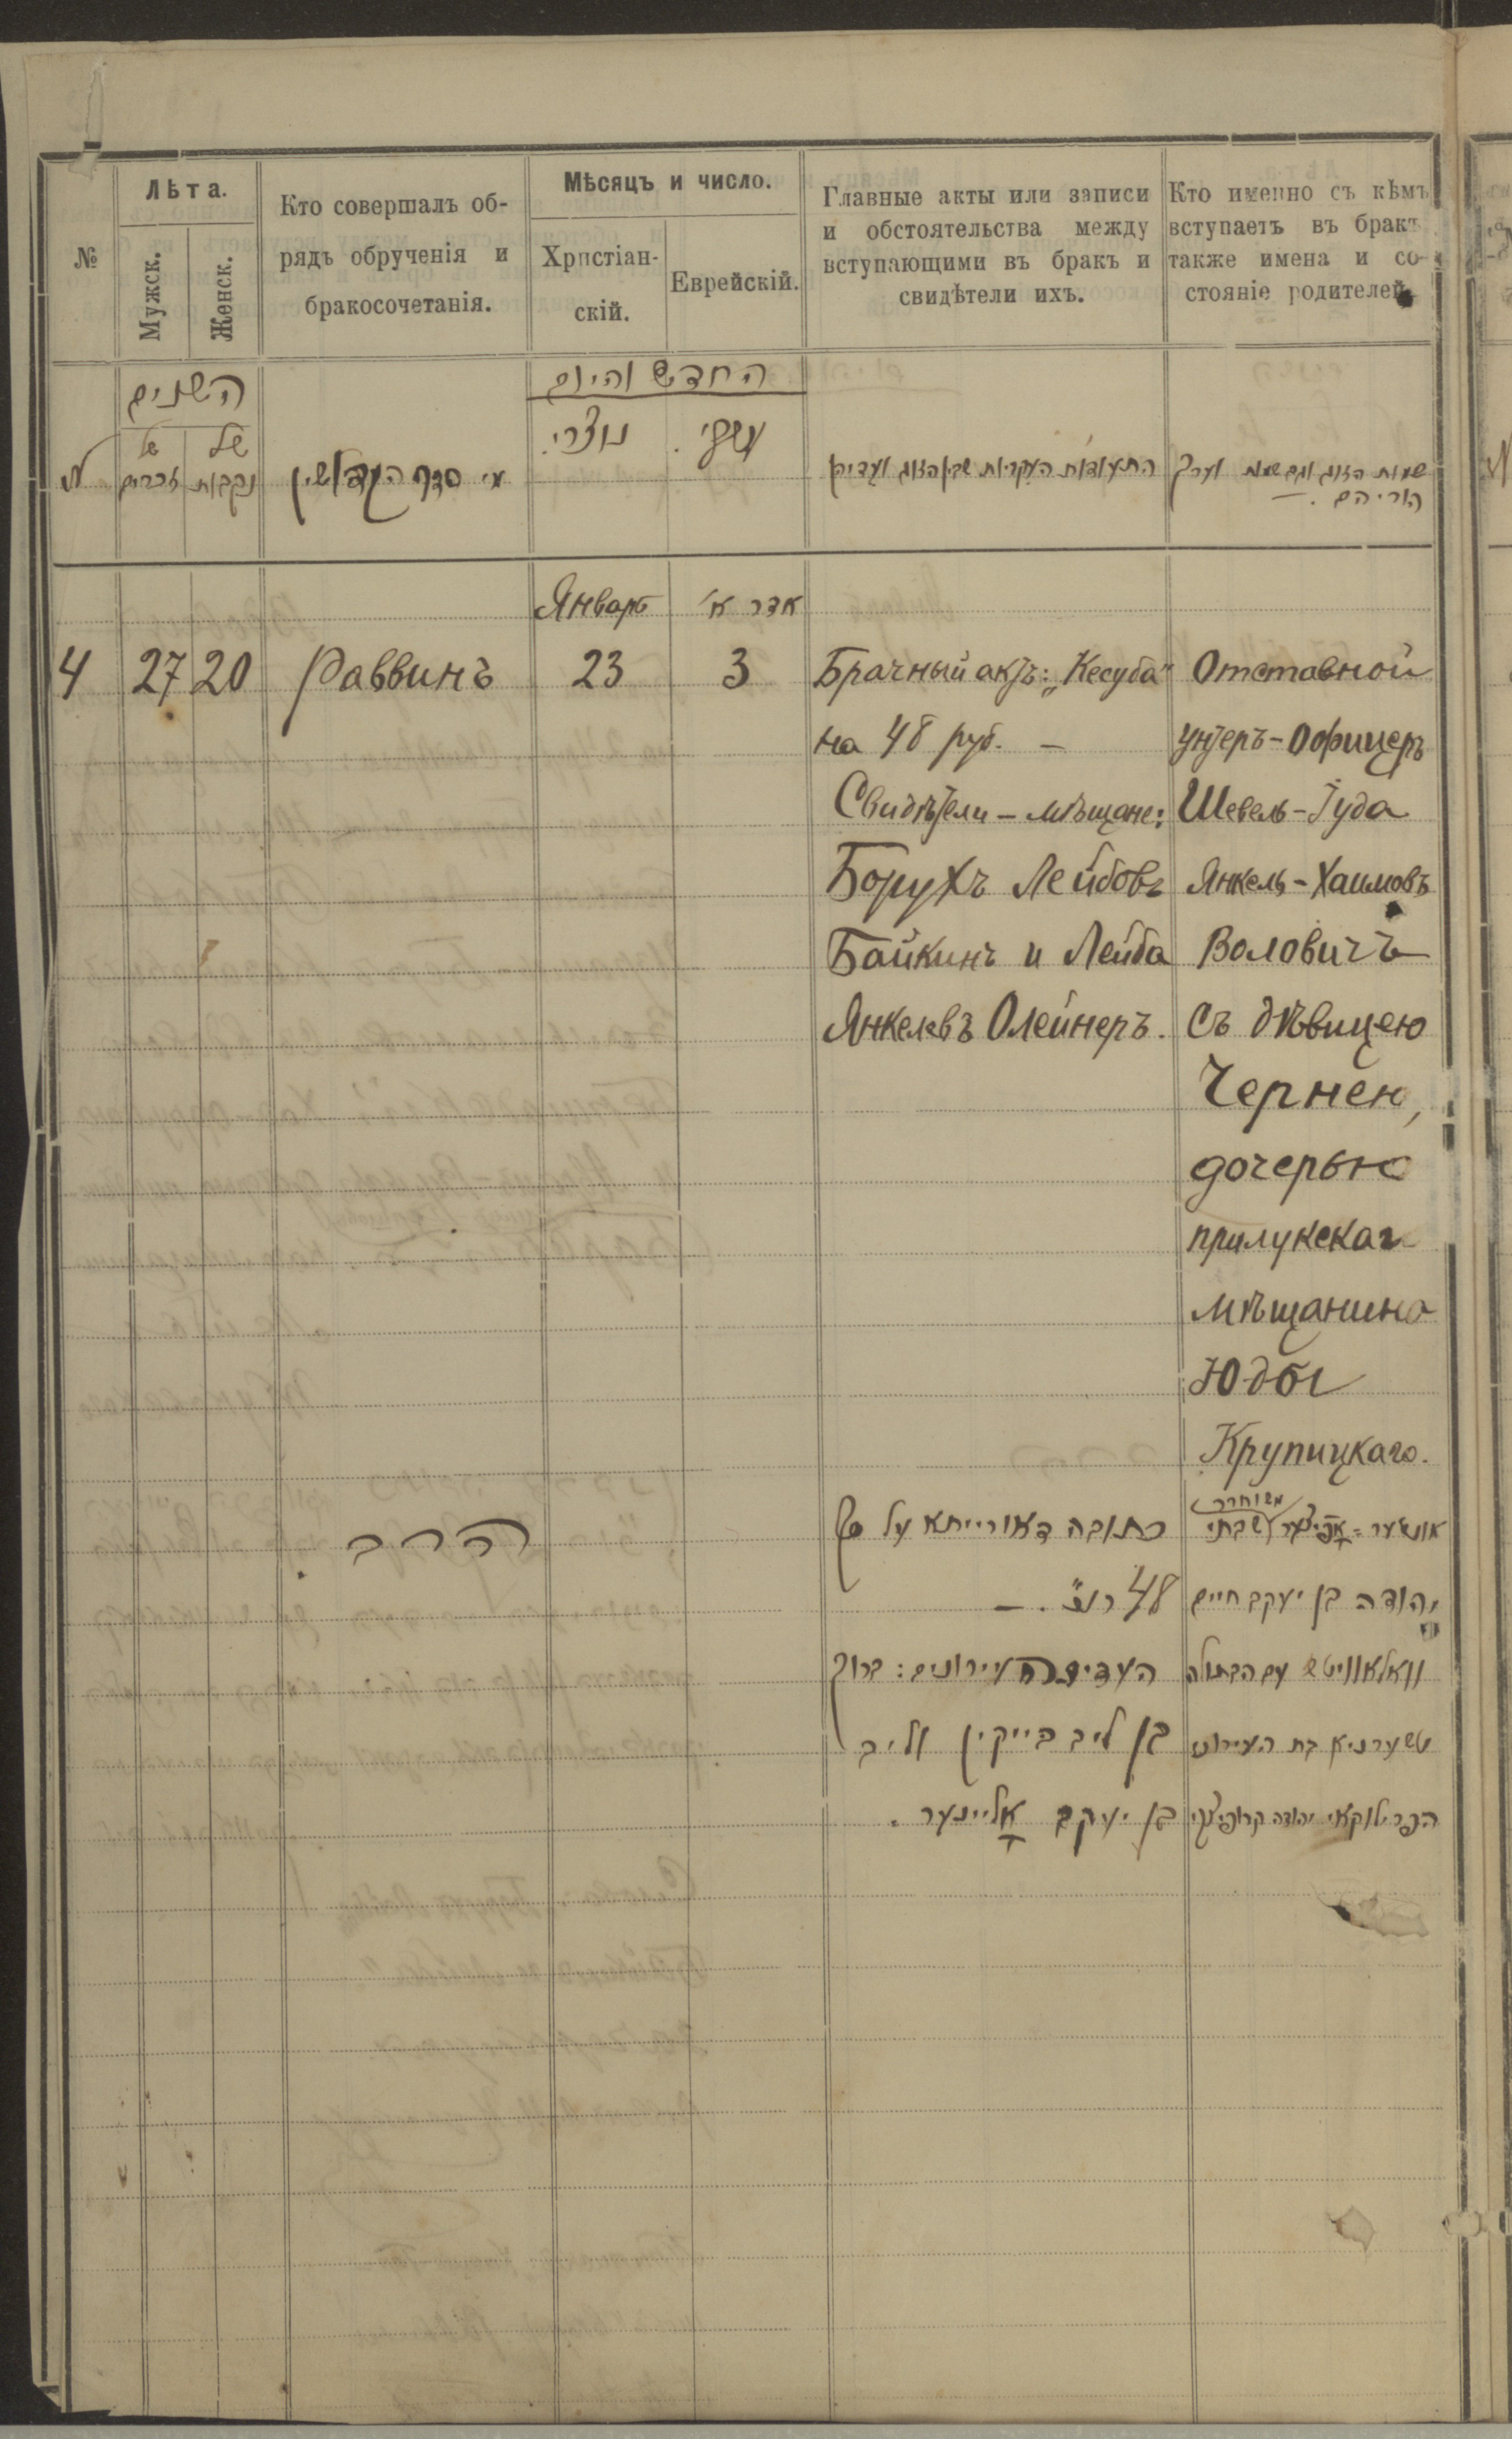 №
Лѣта.
Мужск.
Женск.
Кто совершалъ об-
рядъ обрученія и
бракосочетанія.
Мѣсяцъ и число.
Христіан-
скій.
Еврейскій.
Главные акты или записи
и обстоятельства между
вступающими въ бракъ и
свидѣтели ихъ.
Кто именно съ кѣмъ
вступаетъ въ бракъ
также имена и со-
стояніе родителей.
השנים
של
זכרים
של
נקבות
מי סדר הקדושין
החדש והיום
נוצרי.
עברי.
התעודות העקריות שבין הזוג ועדיהן
שמות הזוג וגם שמות וערך
הוריהם. —
Январь
אדר א׳
4
27
20
Раввинъ
23
3
Брачный актъ: „Кесуба"
на 48 руб. —
Свидѣтели – мѣщане:
Борухъ Лейбовъ
Байкинъ и Лейба
Янкелевъ Олейнеръ.
Отставной
унтеръ-Офицеръ
Шевель-Іуда
Янкель-Хаимовъ
Воловичъ
съ дѣвицею
Чернею,
дочерью
прилукскаго
мѣщанина
Юды
Крупицкаго.
הרב.
כתובה דאורייתא על סך
48 רו״כ. —
העדים העירונים: ברוך
בן ליב בייקין וליב
בן יעקב אָליינער.
משוחרר
אונטער=אָפיצער שבתי
יהודה בן יעקב חיים
וואלאוויטש עם הבתולה
טשערניא בת העירוני
הפרילוקאי יהודה קרופיצקי